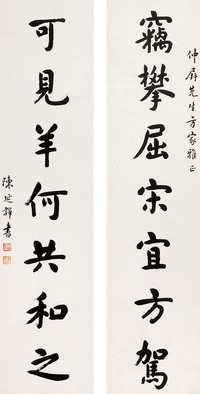 仲屏先生方家雅正
竊攀屈宋宜方駕
可見羊何共和之
陳延韡書